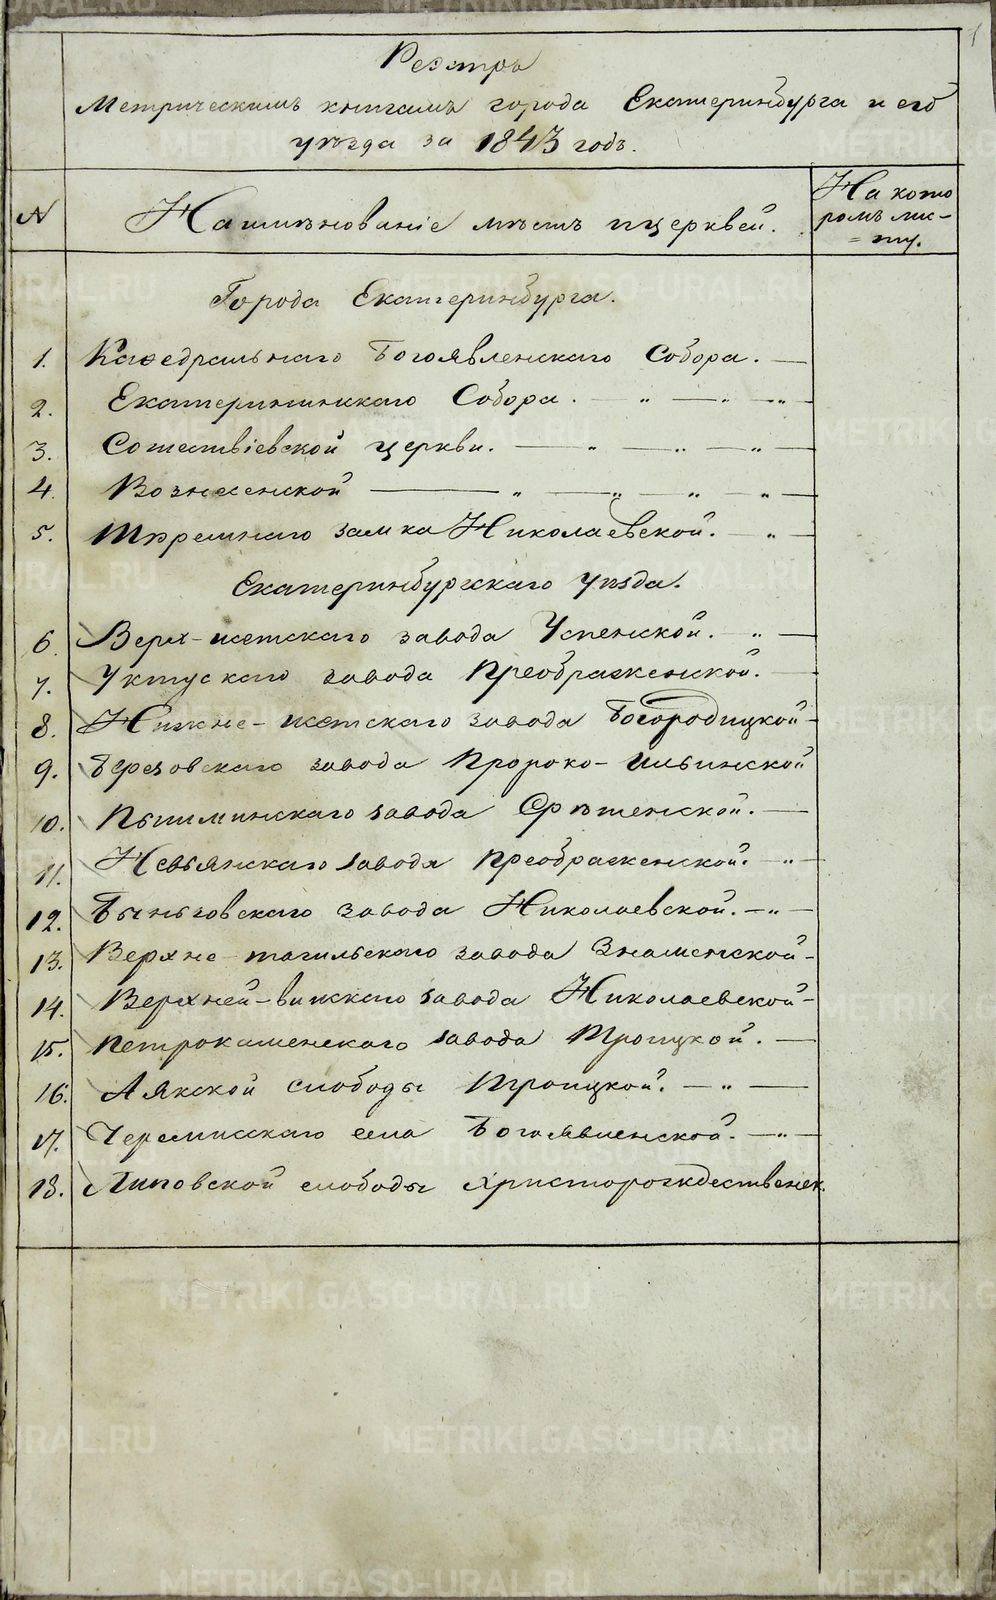 1
Реэстръ
Метрическимъ книгамъ города Екатеринбурга и его
уѣзда за 1843 годъ.
N
Наимѣнованіе мѣстъ и церквей.
На кото
ромъ лис-
=ту.
Города Екатеринбурга.
1. Кафедральнаго Богоявленскаго Собора. —
2. Екатерининскаго Собора. — „ — „ — „
3. Сошествіевской церкви. — „ — „ — „ —
4. Вознесенской — „ — „ — „ — „ —
5. Тюремнаго замка Николаевской. — „ —
Екатеринбургскаго уѣзда.
6. Верх-исетскаго завода Успенской. — „ —
7. Уктускаго завода Преображенской. —
8. Нижне-исетскаго завода Богородицкой —
9. Березовскаго завода Пророко-Ильинской
10. Пышминскаго завода Срѣтенской. —
11. Невьянскаго завода Преображенской. — „ —
12. Быньговскаго завода Николаевской. — „ —
13. Верхне-тагильскаго завода Знаменской —
14. Верхней-вискаго завода Николаевской —
15. Петрокаменскаго завода Троицкой. —
16. Аякской слободы Троицкой. — „ —
17. Черемисскаго села Богоявленской. — „ —
18. Липовской слободы Христорождественск.
METRIKI.GASO-URAL.RU